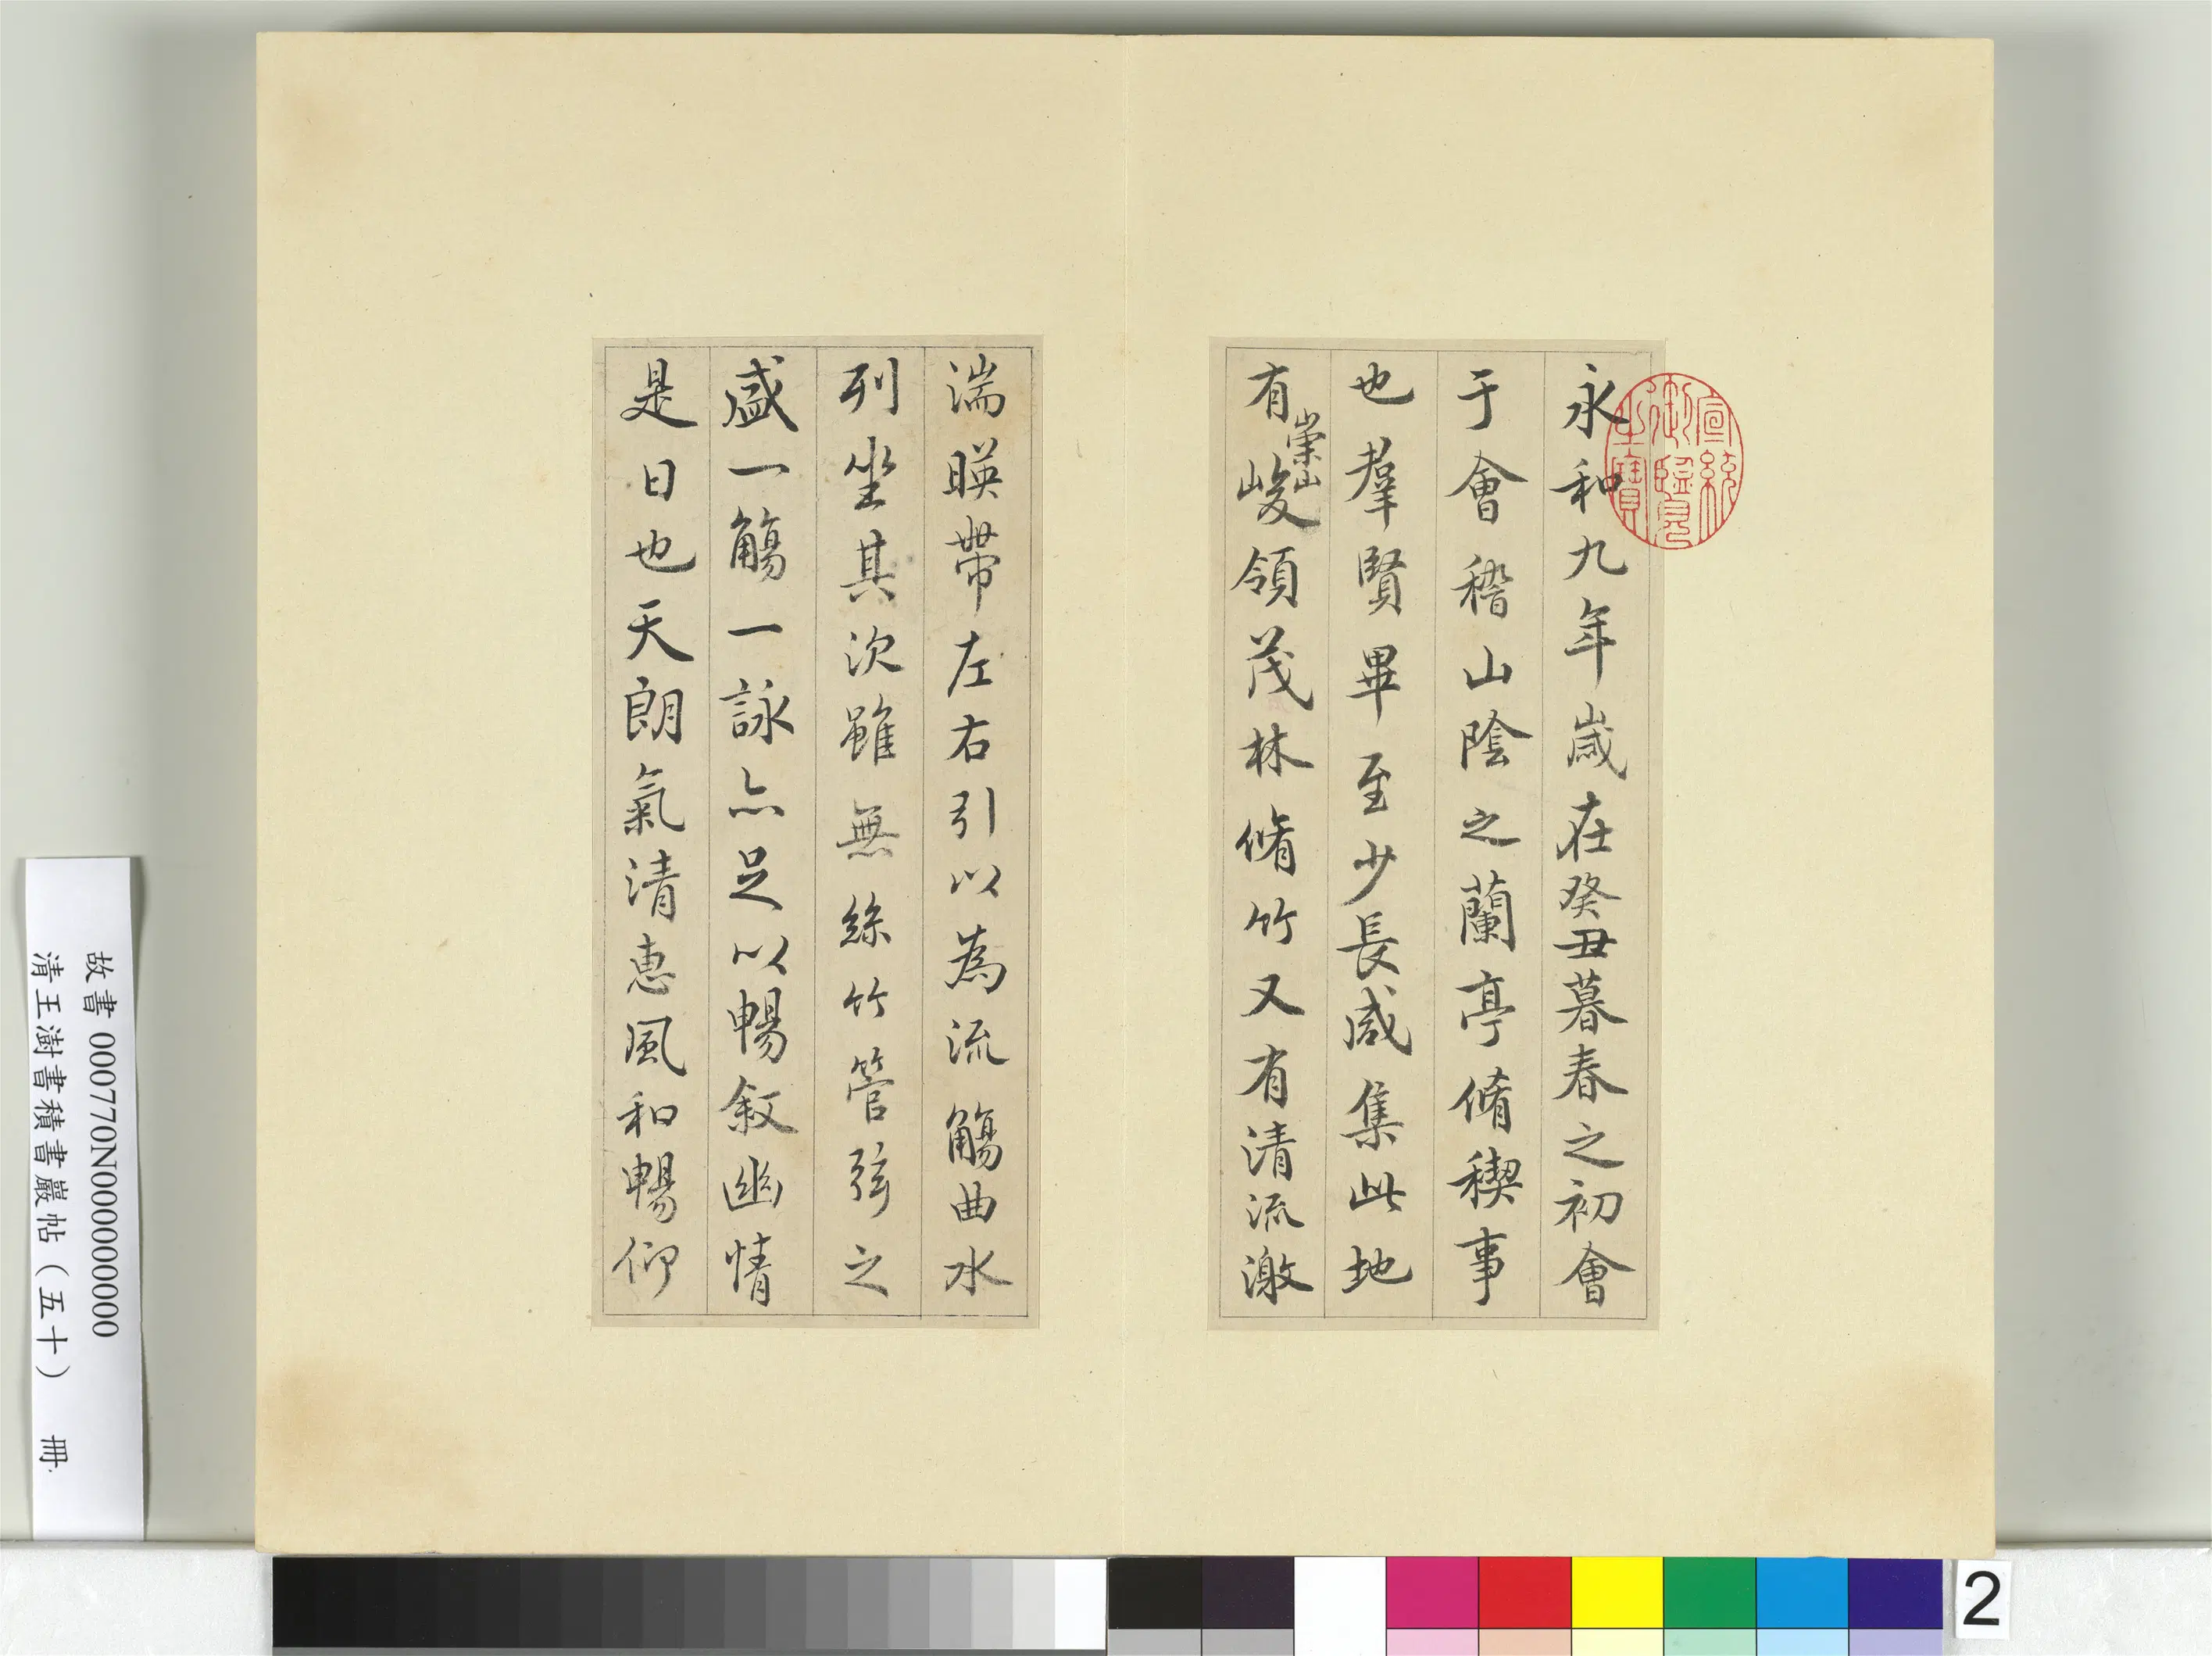 永和九年歲在癸丑暮春之初會
于會稽山陰之蘭亭脩稧事
也羣賢畢至少長咸集此地
有崇山峻領茂林脩竹又有清流激
湍暎帶左右引以為流觴曲水
列坐其次雖無絲竹管弦之
盛一觴一詠亦足以暢敘幽情
是日也天朗氣清惠風和暢仰
宣統御覽之寶
故書 000770N000000000
清王澍書積書巖帖（五十） 冊
2